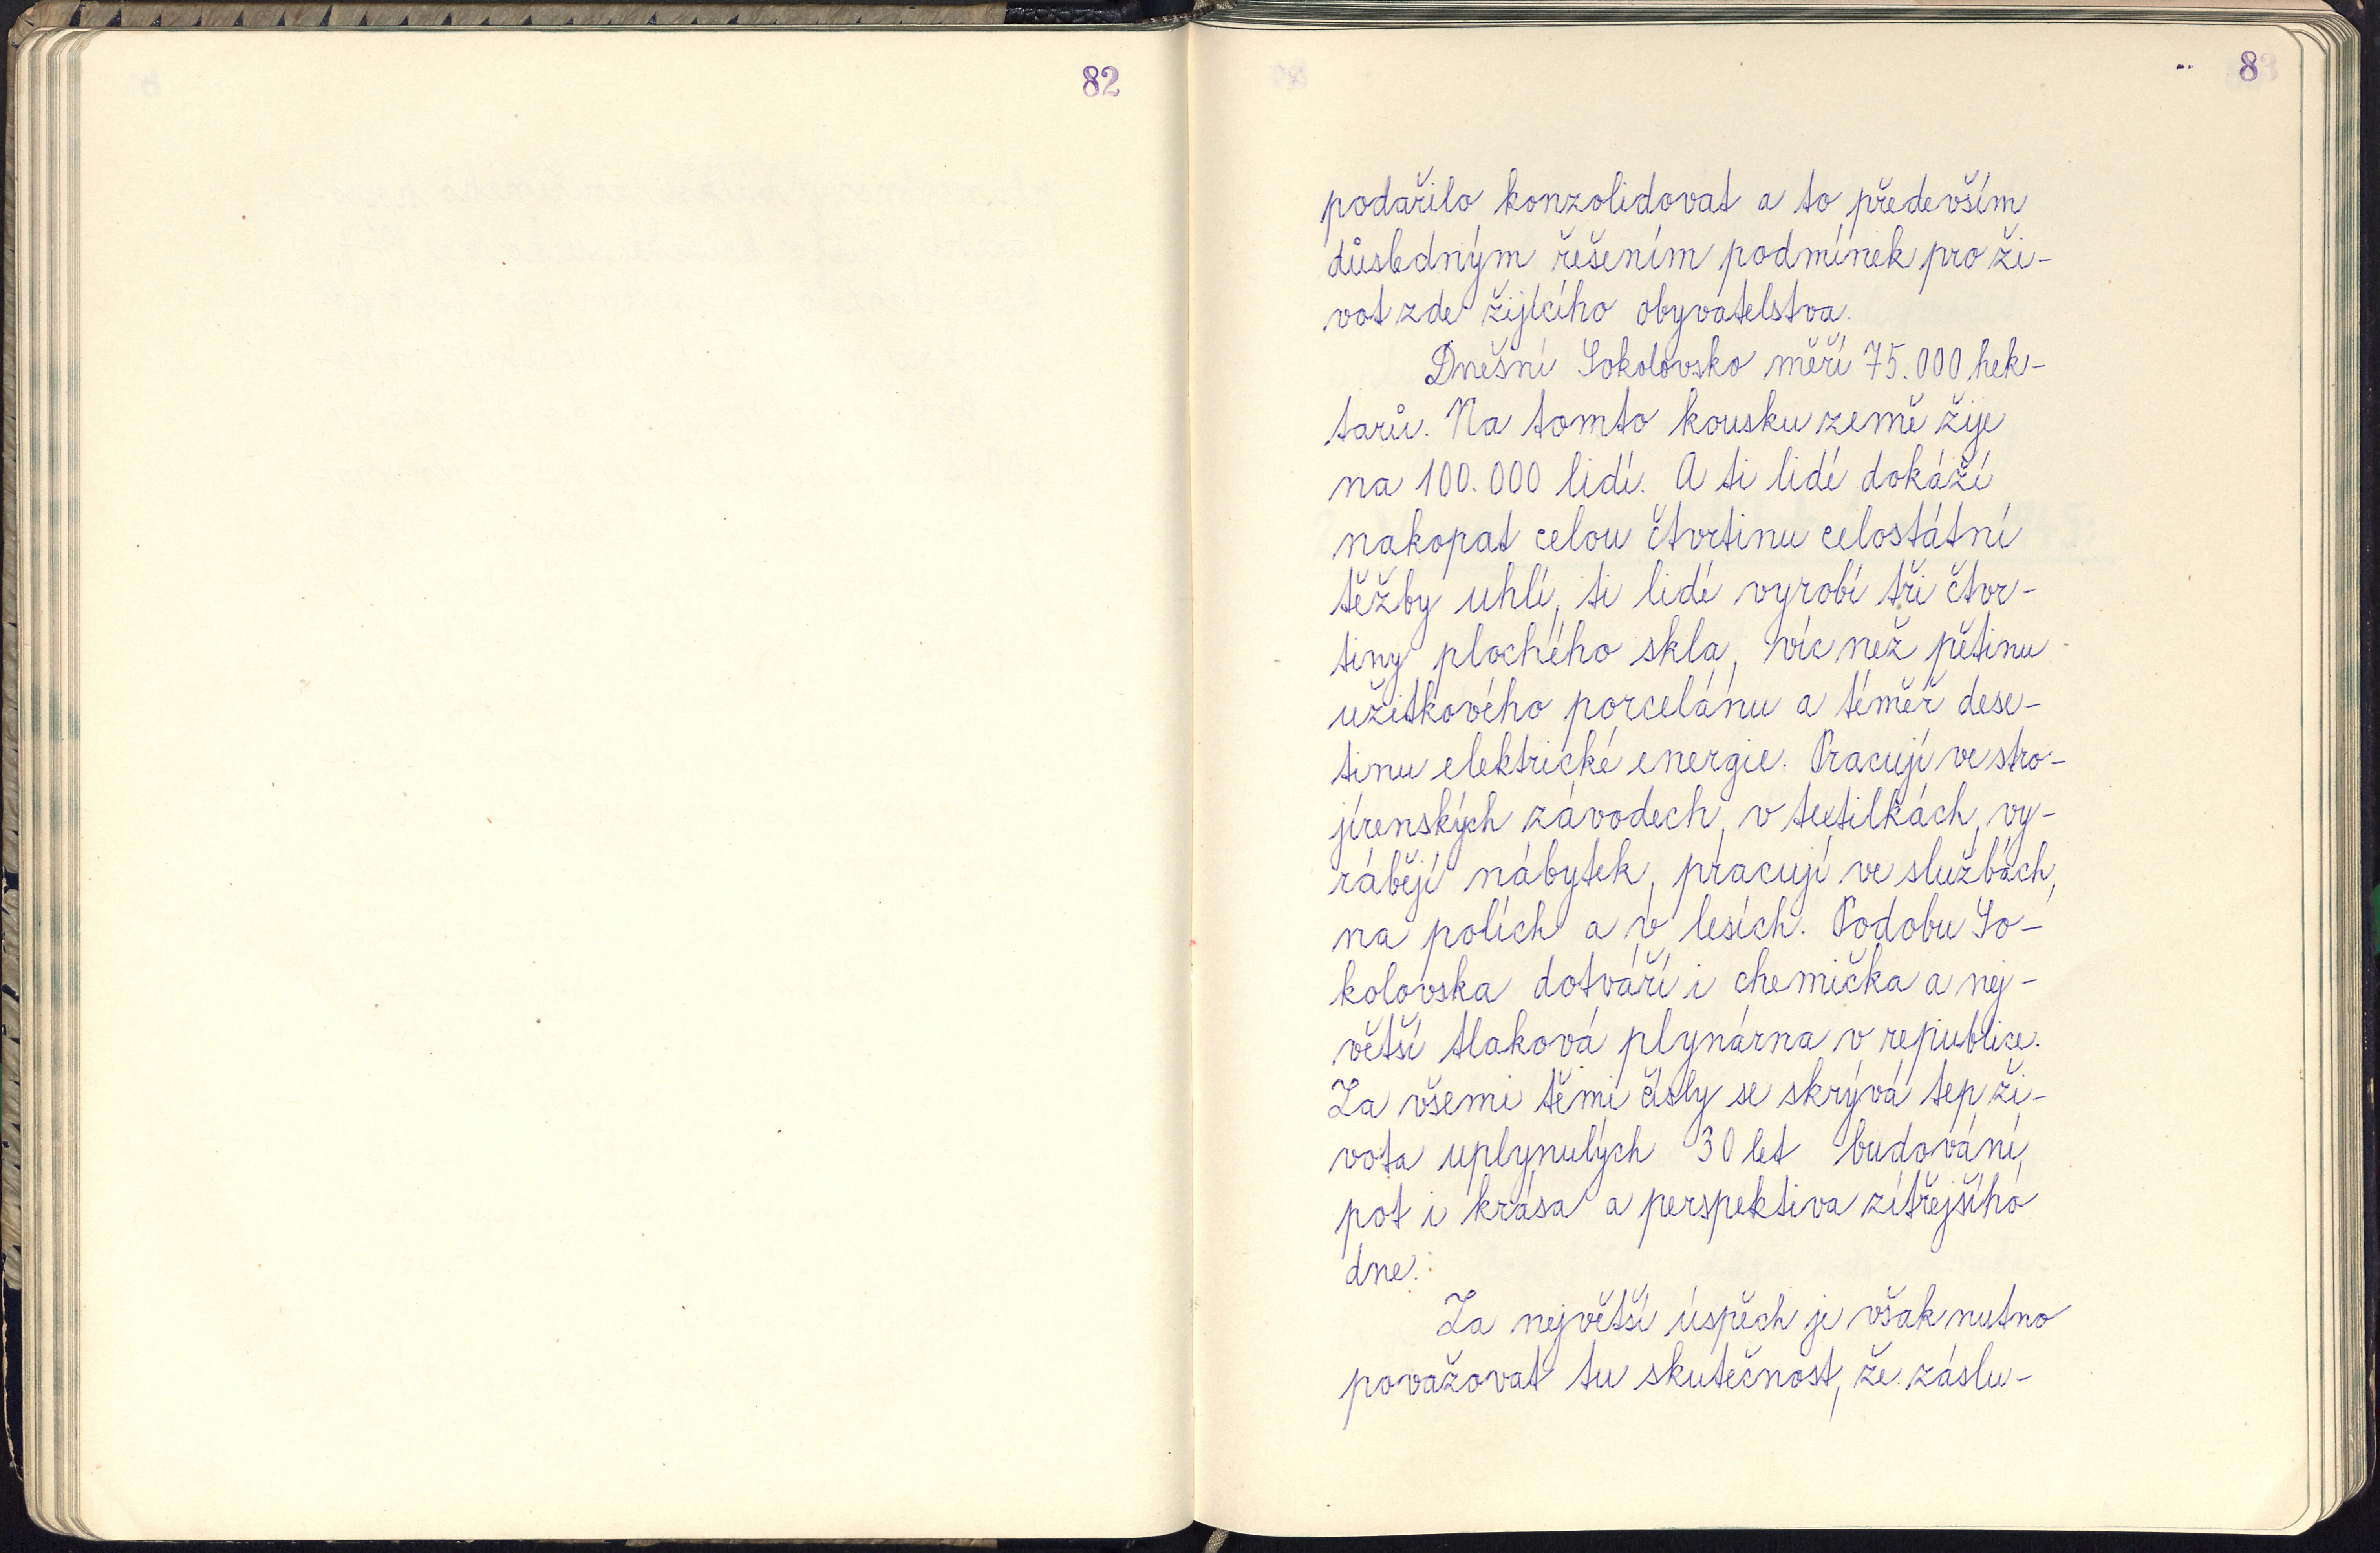 82
83
podařilo konzolidovat a to především
důsledným řešením podmínek pro ži-
vot zde žijícího obyvatelstva.
Dnešní Sokolovsko měří 75.000 hek-
tarů. Na tomto kousku země žije
na 100.000 lidí. A ti lidé dokáží
nakopat celou čtvrtinu celostátní
těžby uhlí, ti lidé vyrobí tři čtvr-
tiny plochého skla, víc než pětinu
užitkového porcelánu a téměř dese-
tinu elektrické energie. Pracují ve stro-
jírenských závodech, v textilkách, vy-
rábějí nábytek, pracují ve službách,
na polích a v lesích. Podobu So-
kolovska dotváří i chemička a nej-
větší tlaková plynárna v republice.
Za všemi těmi čísly se skrývá tep ži-
vota uplynulých 30 let budování,
pot i krása a perspektiva zítřejšího
dne.
Za největší úspěch je však nutno
považovat tu skutečnost, že záslu-